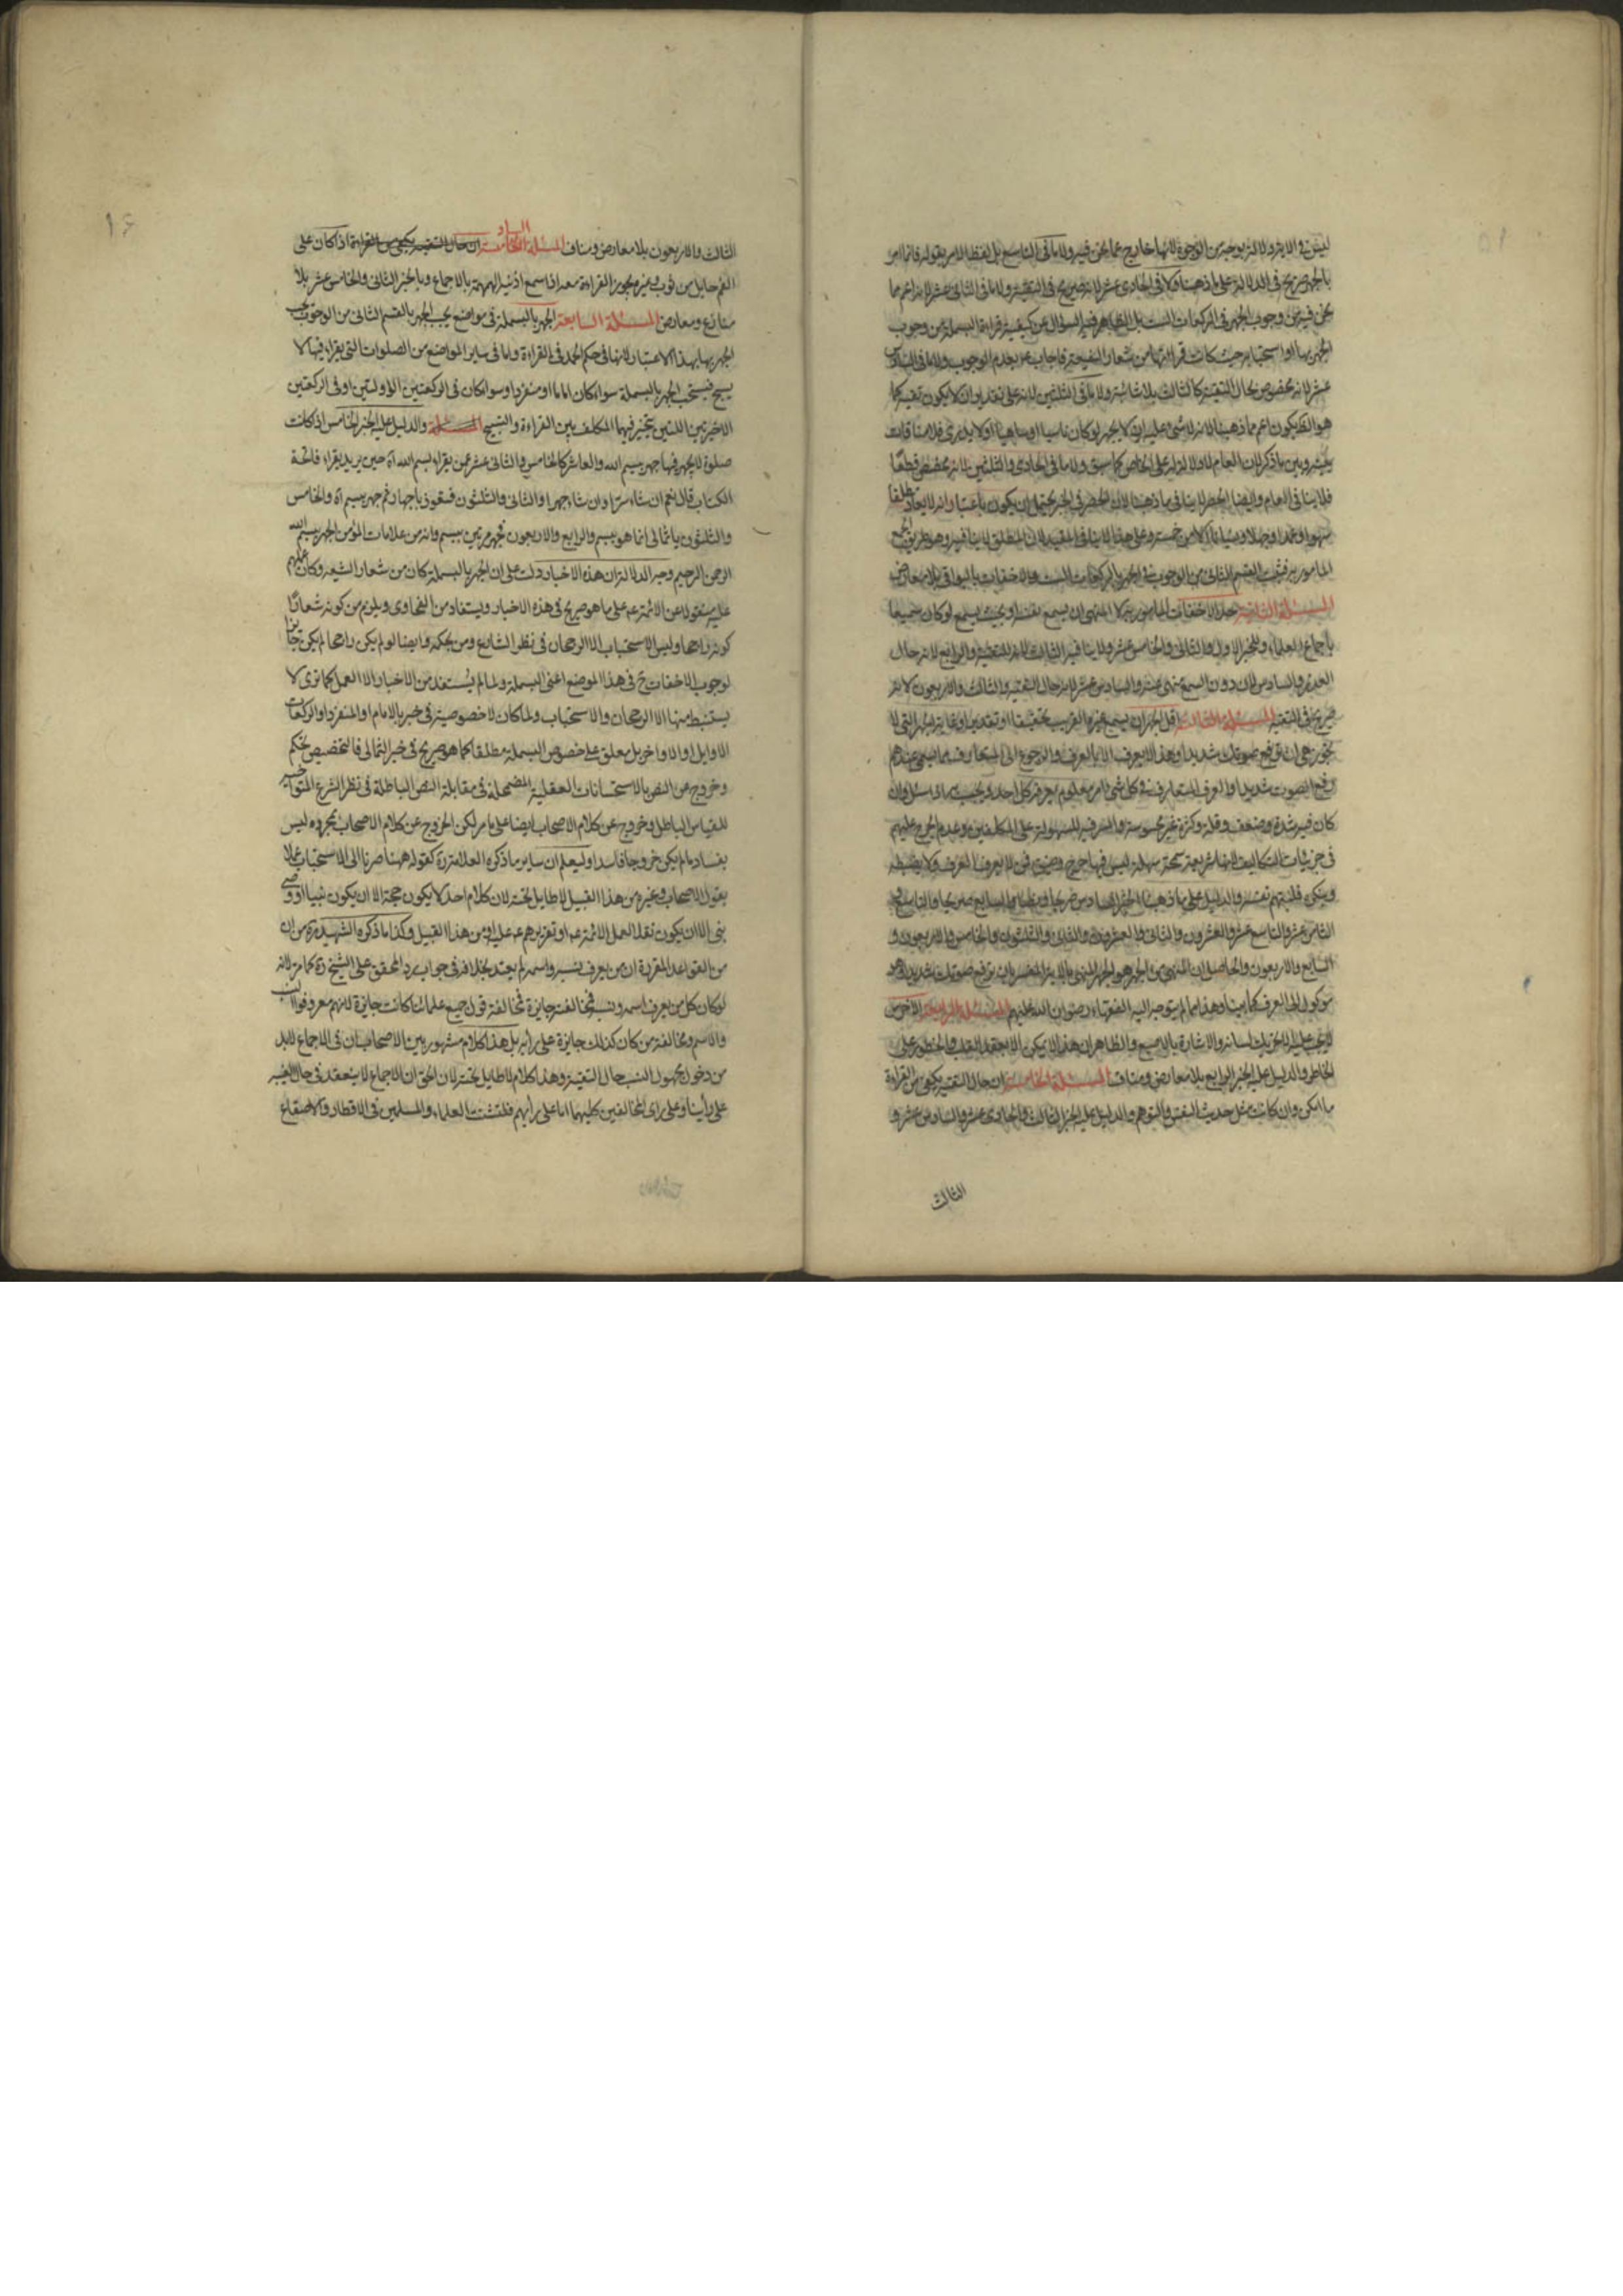 ليس في الآية دلالة بوجه من الوجوه لانها خارج عما نحن فيه ولا ما في التاسع بل لفظ الامر بقوله فانما امر
بالجهر صريح في الدلالة على ما ذهبنا ولا في الحادي عشر لانه صريح في التقية ولا ما في الثاني عشر لانه اعم مما
نحن فيه من وجوب الجهر في الركعات الست بل الظاهر فيه السؤال عن كيفية قراءة البسملة من وجوب
الجهر بها او استحبابه حيث كانت قرائتها من شعار الشيعة فاجاب ع بعدم الوجوب ولا ما في السادس
عشر لانه مخصوص بحال التقية كالثالث بلا شائبة ولا ما في الثلثين لانه على تقدير ان لا يكون تقية كما
هو الظ يكون اعم مما ذهبنا لانه لا شئ عليه ان لا يجهر لو كان ناسيا او ساهيا او لا يدري فلا منافات
بينه وبين ما ذكر لان العام لا دلالة له على الخاص كما سبق ولا ما في الحادي والثلثين لانه مخصص قطعا
فلا ينافي العام وايضا الحصر لا ينافي ما ذهبنا لان الحصر في الخبر يحتمل ان يكون باعتبار انه لا يعاد مطلقا
سهوا وعمدا وجهلا ونسيانا الا من خمسة وعلى هذا لا ينافي المقيد لان المطلق لا ينافيه وهو طريق الجمع
المامور به فثبت القسم الثاني من الوجوب في الجهر بالركعات الست والاخفات بالبواقي بلا معارض
المسئلة الثانية حد الاخفات المامور به كالمنهي ان يسمع نفسه او بحيث يسمع لو كان سميعا
باجماع العلماء وللخبر الاول والثاني والخامس عشر ولا ينافيه الثالث لانه للتقية والرابع لانه حال
العذر والسادس لان دون السمع منهي عنه والسادس عشر لانه حال التقية والثالث والاربعون لانه
صريح في التقية المسئلة الثالثة اقل الجهر ان يسمع غيره القريب تحقيقا او تقديرا وغاية الجهر التي لا
يجوز هي ان ترفع صوتك شديدا وهذا لا يعرف الا بالعرف والرجوع الى المتعارف مما يسمى عندهم
رفع الصوت شديدا والعرف المتعارف في كل شئ امر معلوم يعرفه كل احد ويجيب به اذا سئل وان
كان فيه شدة وضعف وقلة وكثرة غير محسوسة والسر فيه السهولة على المكلفين وعدم الحرج عليهم
في جزئيات التكاليف لانها شريعة سمحة سهلة ليس فيها حرج وضيق فمن لا يعرف العرف ولا يضبطه
وينكره فليتهم نفسه والدليل على ما ذهبنا الخبر السادس صريحا وبظاهره السابع صريحا والتاسع
الثامن عشر والتاسع عشر والعشرون والثاني والعشرون والثاني والثلثون والخامس والاربعون و
السابع والاربعون والحاصل ان المنهي من الجهر هو الجهر المنهي بالآية المفسر بان ترفع صوتك شديدا وهو
موكول الى العرف كما بينا وهذا مما لم يتوجه اليه الفقهاء رضوان الله عليهم المسئلة الرابعة الاخرس
لا يجب عليه الا تحريك لسانه والاشارة بالاصبع والظاهر ان هذا لا يمكن الا بعقد القلب والخطور على
الخاطر والدليل عليه الخبر الرابع بلا معارض ومناف المسئلة الخامسة ان حال التقية يكفي من القراءة
ما امكن وان كانت مثل حديث النفس والتوهم والدليل عليه الخبر الثالث والحادي عشر والسادس عشر و
الثالث
الثالث والاربعون بلا معارض ومناف المسئلة السادسة ان حال التقية يكفي من القراءة اذا كان على
الفم حايل من ثوب وغيره يجوز القراءة معه اذا سمع اذنيه الهمهمة بالاجماع وبالخبر الثاني والخامس عشر بلا
منازع ومعارض المسئلة السابعة الجهر بالبسملة في مواضع يجب الجهر بالقسم الثاني من الوجوب يجب
الجهر بها بهذا الاعتبار لانها في حكم الحمد في القراءة واما في ساير المواضع من الصلوات التي يقراء فيها لا
يسبح فيستحب الجهر بالبسملة سواء كان اماما او منفردا وسواء كان في الركعتين الاولتين او في الركعتين
الاخيرتين اللتين يتخير فيهما المكلف بين القراءة والتسبيح المسئلة والدليل عليه الخبر الخامس اذا كانت
صلوة لا يجهر فيها جهر ببسم الله والعاشر كالخامس والثاني عشر عمن يقراء بسم الله آه حين يريد يقراء فاتحة
الكتاب قال نعم ان شاء سرا وان شاء جهرا والثاني والثلثون فتعوذ باجهار ثم جهر ببسم آه والخامس
والثلثون يا ثمالي انما هو ببسم والرابع والاربعون فجهر مرتين ببسم وانه من علامات المؤمن الجهر ببسم الله
الرحمن الرحيم وجه الدلالة ان هذه الاخبار دلت على ان الجهر بالبسملة كان من شعار الشيعة وكان عليهم
عليه منقولا عن الائمة ع على ما هو صريح في هذه الاخبار ويستفاد من الفحاوى ويلزم من كونه شعارا
كونه راجحا وليس الاستحباب الا الرجحان في نظر الشارع ومن بحكمه وايضا لو لم يكن راجحا لم يكن جائزا
لوجوب الاخفات ح في هذا الموضع اعني البسملة ولما لم يستفد من الاخبار الا العمل كما ترى لا
يستنبط منها الا الرجحان والاستحباب ولما كان لا خصوصية في خبر بالامام او المنفرد او الركعات
الاوايل او الاواخر بل معلق على خصوص البسملة مطلقا كما هو صريح في خبر الثمالي فالتخصيص تحكم
وخروج عن النص بالاستحسانات العقلية المضمحلة في مقابلة النص الباطلة في نظر الشرع المتواتر خبره
للقياس الباطل وخروج عن كلام الاصحاب ايضا على ما مر لكن الخروج عن كلام الاصحاب بمجرده ليس
بفساد ما لم يكن خروجا فاسدا وليعلم ان ساير ما ذكره العلامة ره كقوله ههنا صرنا الى الاستحباب عملا
بقول الاصحاب وغيره من هذا القبيل لا طايل تحته لان كلام احد لا يكون حجة الا ان يكون نبيا او وصي
نبي الا ان يكون نقلا لعمل الائمة ع او تقريرهم ع عليه ومن هذا القبيل وكذا ما ذكره الشهيد ره من ان
من القواعد المقررة ان من يعرف نسبه واسمه لم يعتد بخلافه في جواب رد المحقق على الشيخ ره كما مر لانه
لو كان كل من يعرف اسمه ونسبه مخالفته جايزة فمخالفة قول جميع علمائنا كانت جايزة لانهم معروفوا النسب
والاسم ومخالفة من كان كذلك جايزة على رأيه بل هذا كلام مشهور بين الاصحاب ان في الاجماع لا بد
من دخول مجهول النسب حال التقية وهذا كلام لا طايل تحته لان الحق ان الاجماع لا ينعقد في حال الغيبة
على رأينا وعلى رأى المخالفين كليهما اما على رأيهم فلتشتت العلماء والمسلمين في الاقطار والاصقاع